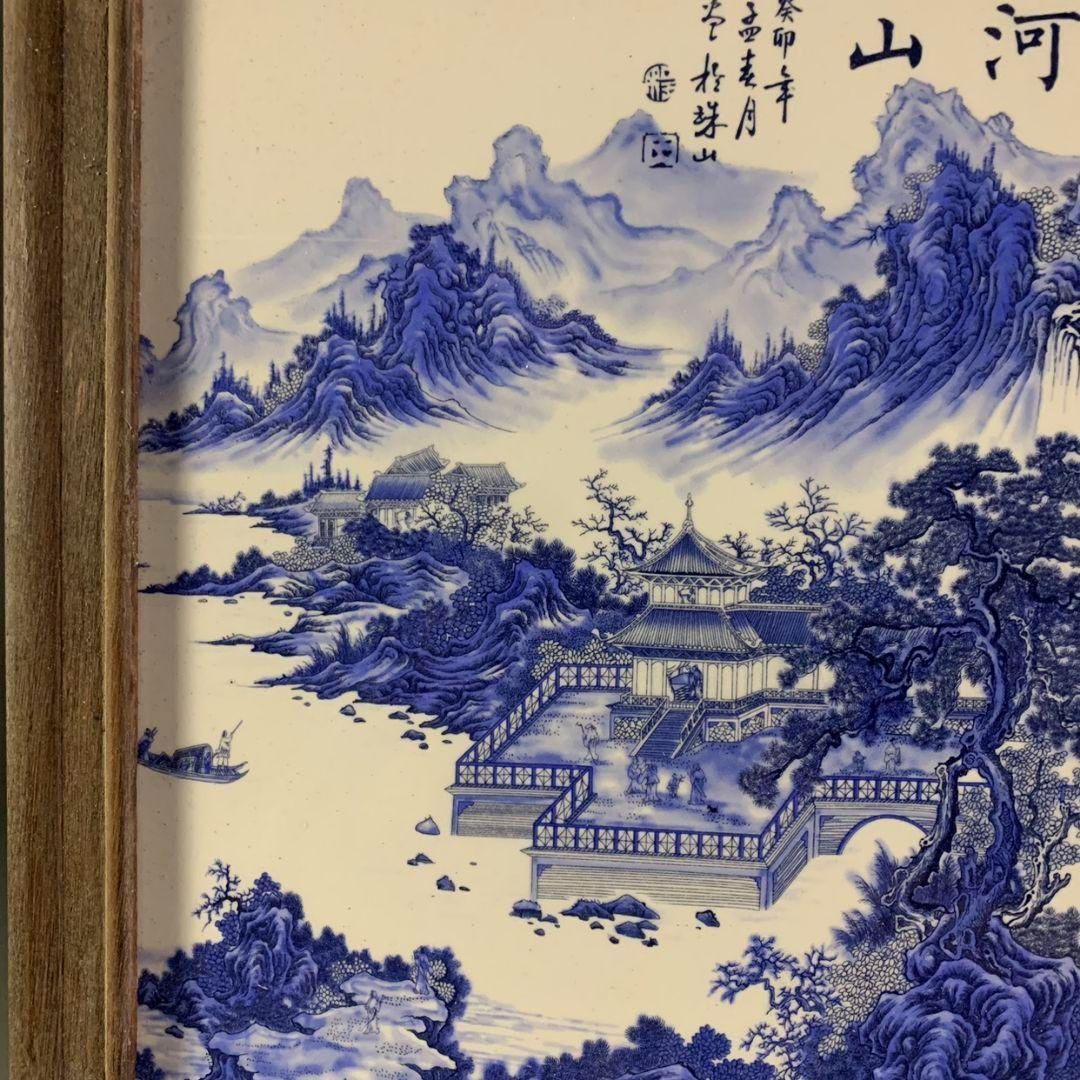 河山
癸卯年
孟春月
於珠山